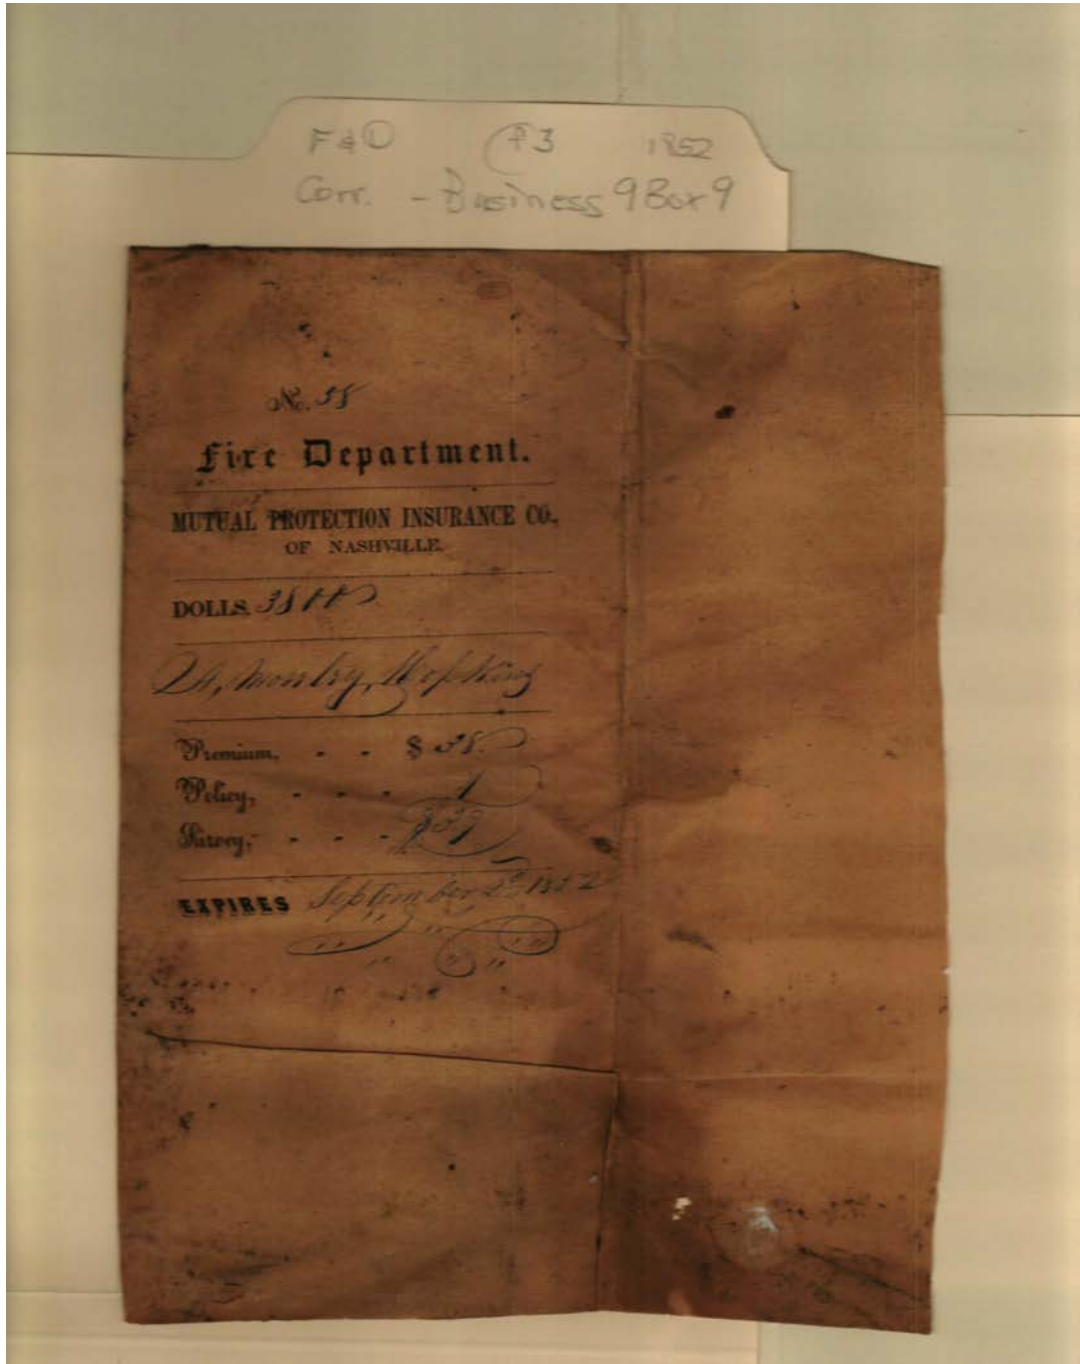 F & D f 3 1852
Corr. - Business 9 Box 9
No. 38
Fire Department.
MUTUAL PROTECTION INSURANCE CO.,
OF NASHVILLE.
DOLLS. 3800
Hopkins
Premium, - - $ 38.
Policy, - - - 1
Survey, - - - $39
EXPIRES September 2d 1852